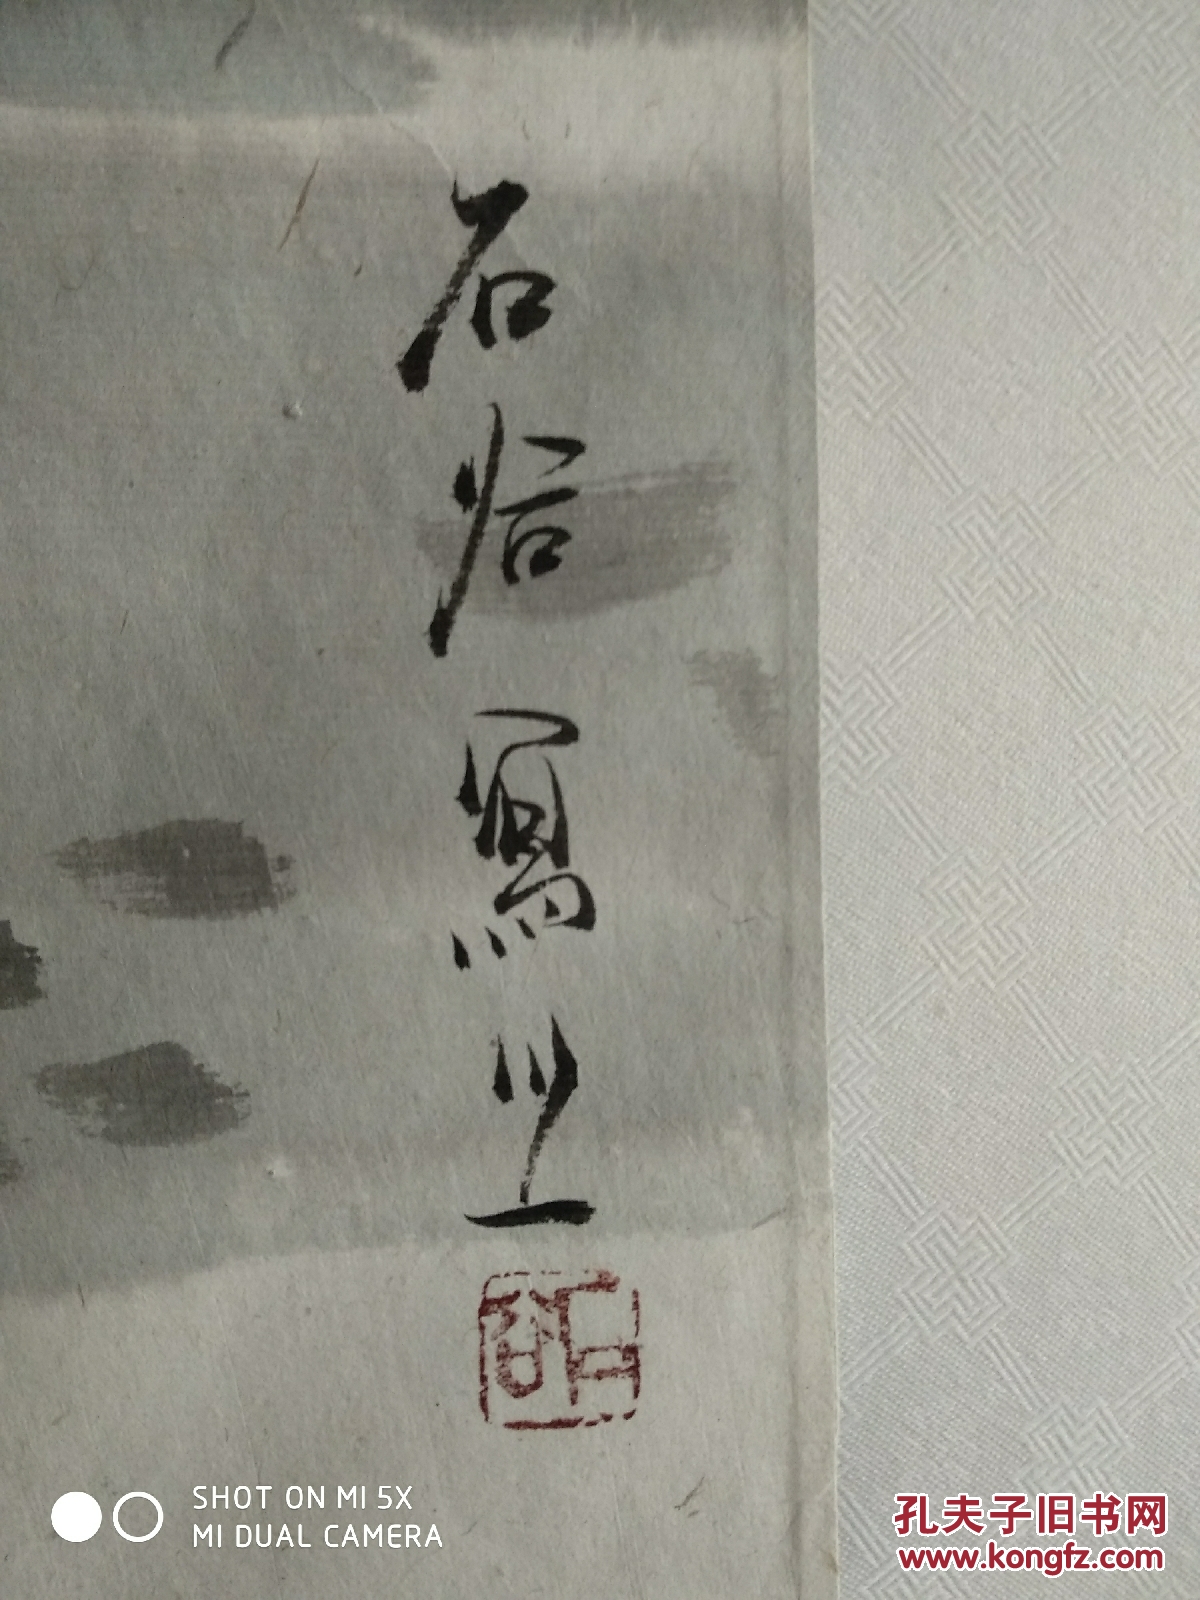 石谷寫
石谷
SHOT ON MI 5X
MI DUAL CAMERA
孔夫子旧书网
www.kongfz.com